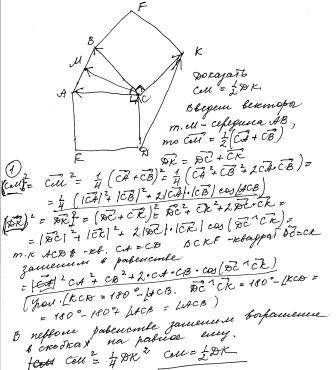 F
B
K
M
A
C
E
D
Доказать
CM = ½ DK.
Введем векторы
т. M - середина AB,
то CM = ½(CA + CB)
DK = DC + CK
①
|CM|² = CM² = ¼(CA + CB)² = ¼(CA² + CB² + 2CA·CB) =
= ¼(|CA|² + |CB|² + 2|CA|·|CB| cos∠ACB)
|DK|² = DK² = (DC + CK)² = DC² + CK² + 2DC·CK =
= |DC|² + |CK|² + 2|DC|·|CK| cos(DC^CK) =
т.к ACDE - кв. CA = CD BCKF - квадрат BC = CK
заменим в равенстве
= CA² + CB² + 2·CA·CB·cos(DC^CK)
угол ∠KCD = 180° - ∠ACB. DC^CK = 180° - ∠KCD =
= 180° - 180° + ∠ACB = ∠ACB)
В первом равенстве заменим выражение
в скобках на равное ему.
CM² = ¼ DK² CM = ½ DK